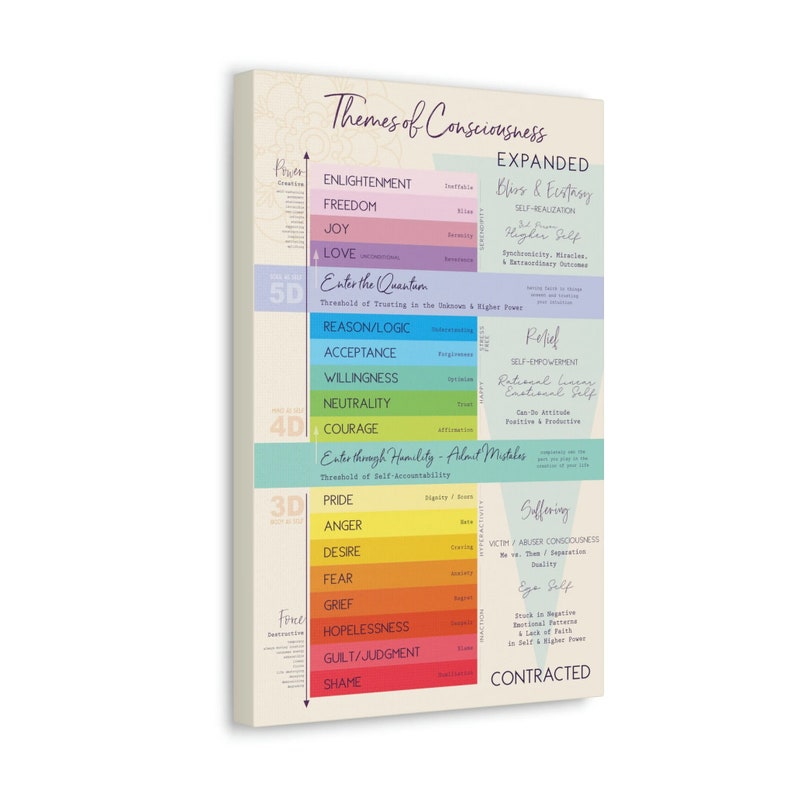 Themes of Consciousness
EXPANDED
Power
Creative
ENLIGHTENMENT Ineffable
FREEDOM Bliss
JOY Serenity
LOVE UNCONDITIONAL Reverence
SERENDIPITY
Bliss & Ecstasy
SELF-REALIZATION
3rd Person
Higher Self
Synchronicity, Miracles,
& Extraordinary Outcomes
SOUL AS SELF
5D
Enter the Quantum
Threshold of Trusting in the Unknown & Higher Power
having faith in things
unseen and trusting
your intuition
REASON/LOGIC Understanding
ACCEPTANCE Forgiveness
WILLINGNESS Optimism
NEUTRALITY Trust
COURAGE Affirmation
STRESS FREE
HAPPY
Relief
SELF-EMPOWERMENT
Rational Linear
Emotional Self
Can-Do Attitude
Positive & Productive
MIND AS SELF
4D
Enter through Humility - Admit Mistakes
Threshold of Self-Accountability
completely own the
part you play in the
creation of your life
3D
BODY AS SELF
PRIDE Dignity / Scorn
ANGER Hate
DESIRE Craving
FEAR Anxiety
GRIEF Regret
HOPELESSNESS Despair
GUILT/JUDGMENT Blame
SHAME Humiliation
HYPERACTIVITY
INACTION
Suffering
VICTIM / ABUSER CONSCIOUSNESS
Me vs. Them / Separation
Duality
Ego Self
Stuck in Negative
Emotional Patterns
& Lack of Faith
in Self & Higher Power
Force
Destructive
CONTRACTED